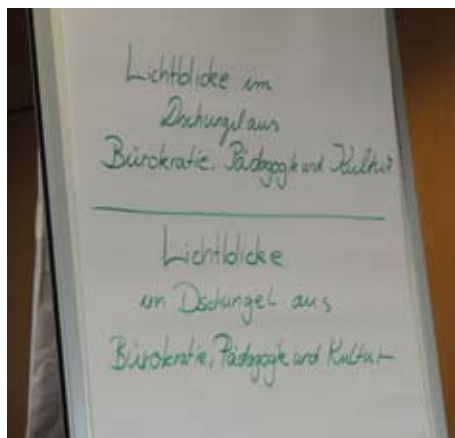 Lichtblicke im
Dschungel aus
Bürokratie. Pädagogik und Kultur
Lichtblicke
im Dschungel aus
Bürokratie, Pädagogik und Kultur